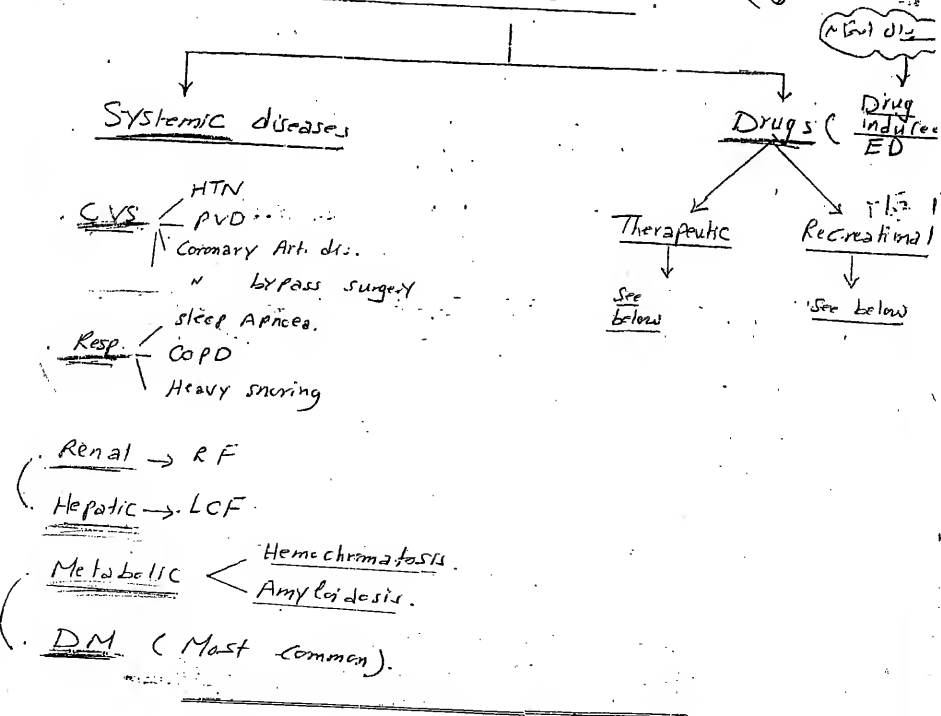 Systemic diseases
Drugs ( Drug
induced
ED
CVS
HTN
PVD
Coronary Art. dis.
" bypass surgery
Resp.
sleep Apnea.
COPD
Heavy snoring
Renal → RF
Hepatic → LCF
Metabolic
Hemochromatosis.
Amyloidosis.
DM (Most common).
Therapeutic
See
below
Recreational
See below